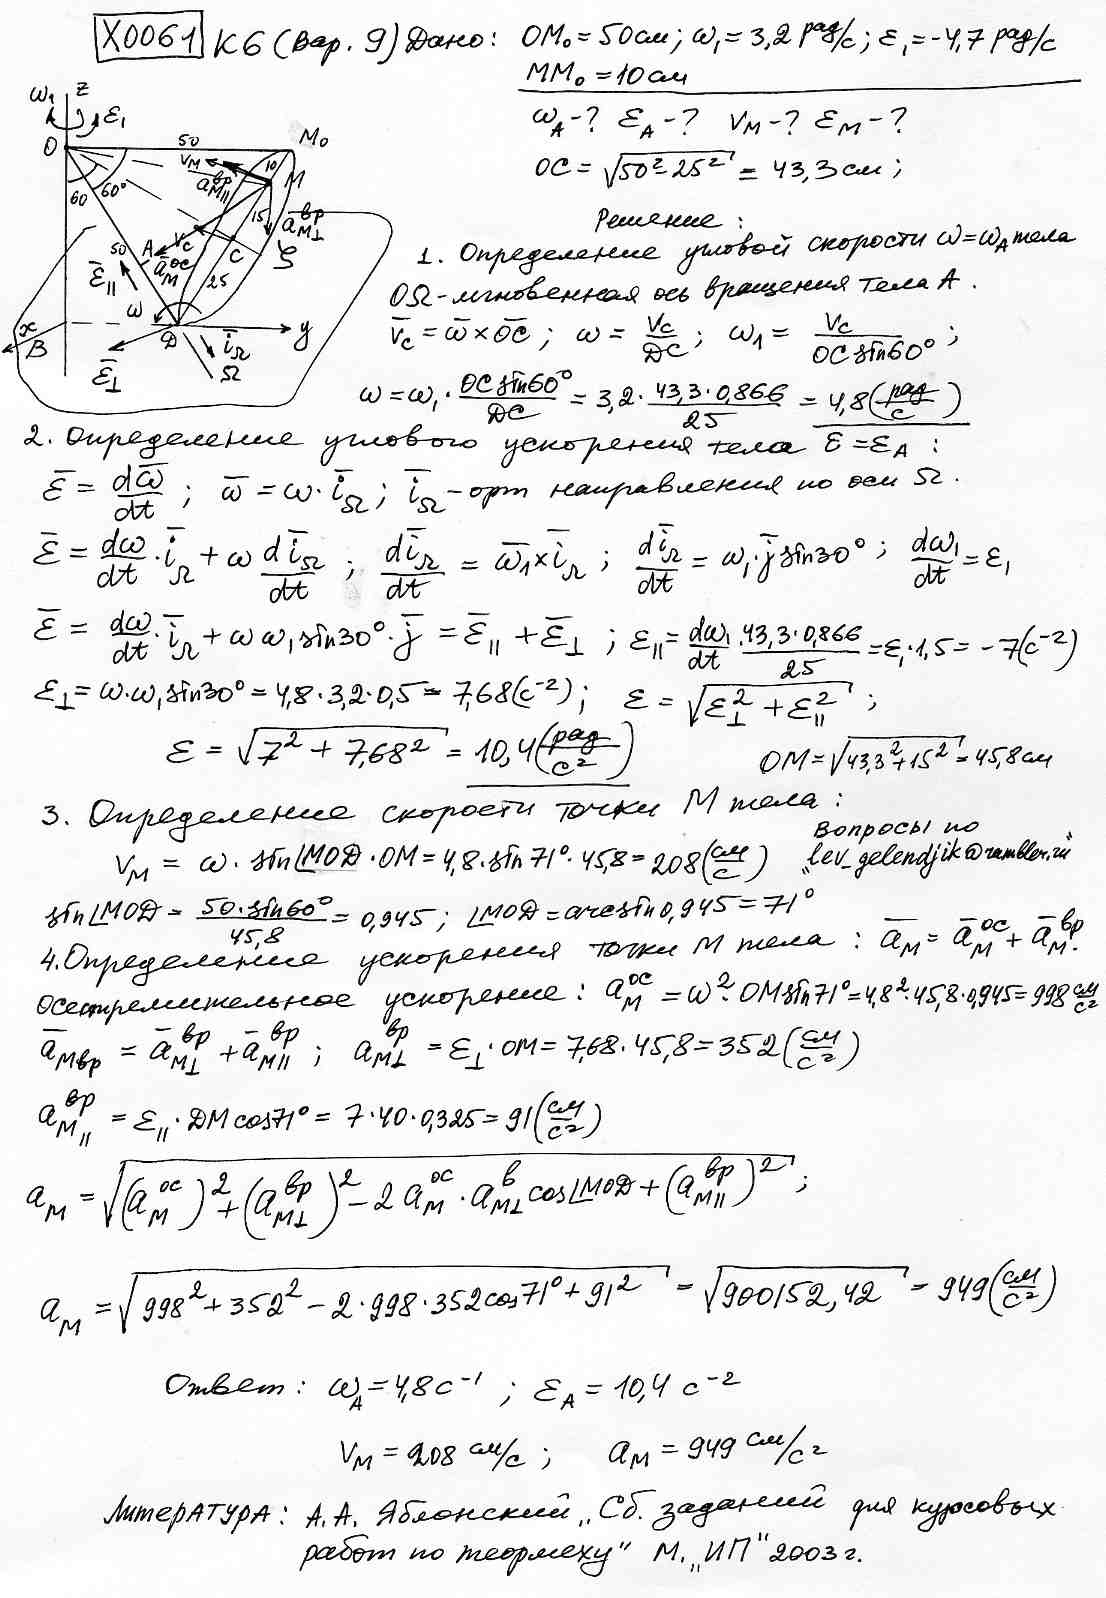 X0061 К6 (Вар. 9) Дано: OM₀ = 50см; ω₁ = 3,2 рад/с; ε₁ = -4,7 рад/с
MM₀ = 10см
ω_A - ? ε_A - ? V_M - ? ε_M - ?
OC = √(50² - 25²) = 43,3 см;
ω₁ z ε₁
O 50 M₀
V_M 10 M
a̅_M∥^вр
60 60°
15 a̅_M⊥^вр
50 A V_C C
a̅_M^ос 25
ε̅∥
ω
x B Д i̅_Ω y
ε̅⊥ Ω
Решение:
1. Определение угловой скорости ω = ω_A тела
OΩ - мгновенная ось вращения тела A.
V̅_C = ω̅ × O̅C̅; ω = V_C/ДC; ω₁ = V_C/(OC sin60°);
ω = ω₁ · (OC sin60°)/ДC = 3,2 · (43,3 · 0,866)/25 = 4,8 (рад/с)
2. Определение углового ускорения тела ε̅ = ε_A :
ε̅ = dω̅/dt; ω̅ = ω · i̅_Ω; i̅_Ω - орт направления по оси Ω.
ε̅ = dω/dt · i̅_Ω + ω di̅_Ω/dt; di̅_Ω/dt = ω̅₁ × i̅_Ω; di̅_Ω/dt = ω₁ · j̅ sin30°; dω₁/dt = ε₁
ε̅ = dω/dt · i̅_Ω + ω ω₁ sin30° · j̅ = ε̅∥ + ε̅⊥; ε∥ = dω₁/dt · (43,3 · 0,866)/25 = ε₁ · 1,5 = -7 (с⁻²)
ε⊥ = ω · ω₁ sin30° = 4,8 · 3,2 · 0,5 = 7,68 (с⁻²); ε = √(ε⊥² + ε∥²);
ε = √(7² + 7,68²) = 10,4 (рад/с²) OM = √(43,3² + 15²) = 45,8 см
3. Определение скорости точки M тела:
Вопросы по
V_M = ω · sin∠MOД · OM = 4,8 · sin71° · 45,8 = 208 (см/с) "lev_gelendjik@rambler.ru"
sin∠MOД = (50 · sin60°)/45,8 = 0,945; ∠MOД = arcsin0,945 = 71°
4. Определение ускорения точки M тела: a̅_M = a̅_M^ос + a̅_M^вр.
Осестремительное ускорение: a_M^ос = ω² · OM sin71° = 4,8² · 45,8 · 0,945 = 998 см/с²
a̅_Mвр = a̅_M⊥^вр + a̅_M∥^вр; a_M⊥^вр = ε⊥ · OM = 7,68 · 45,8 = 352 (см/с²)
a_M∥^вр = ε∥ · ДM cos71° = 7 · 40 · 0,325 = 91 (см/с²)
a_M = √((a_M^ос)² + (a_M⊥^вр)² - 2 a_M^ос · a_M⊥^в cos∠MOД + (a_M∥^вр)²);
a_M = √(998² + 352² - 2 · 998 · 352 cos71° + 91²) = √900152,42 = 949 (см/с²)
Ответ: ω_A = 4,8 с⁻¹; ε_A = 10,4 с⁻²
V_M = 208 см/с; a_M = 949 см/с²
Литература: А.А. Яблонский „Сб. заданий для курсовых
работ по теормеху" М. „ИП" 2003 г.